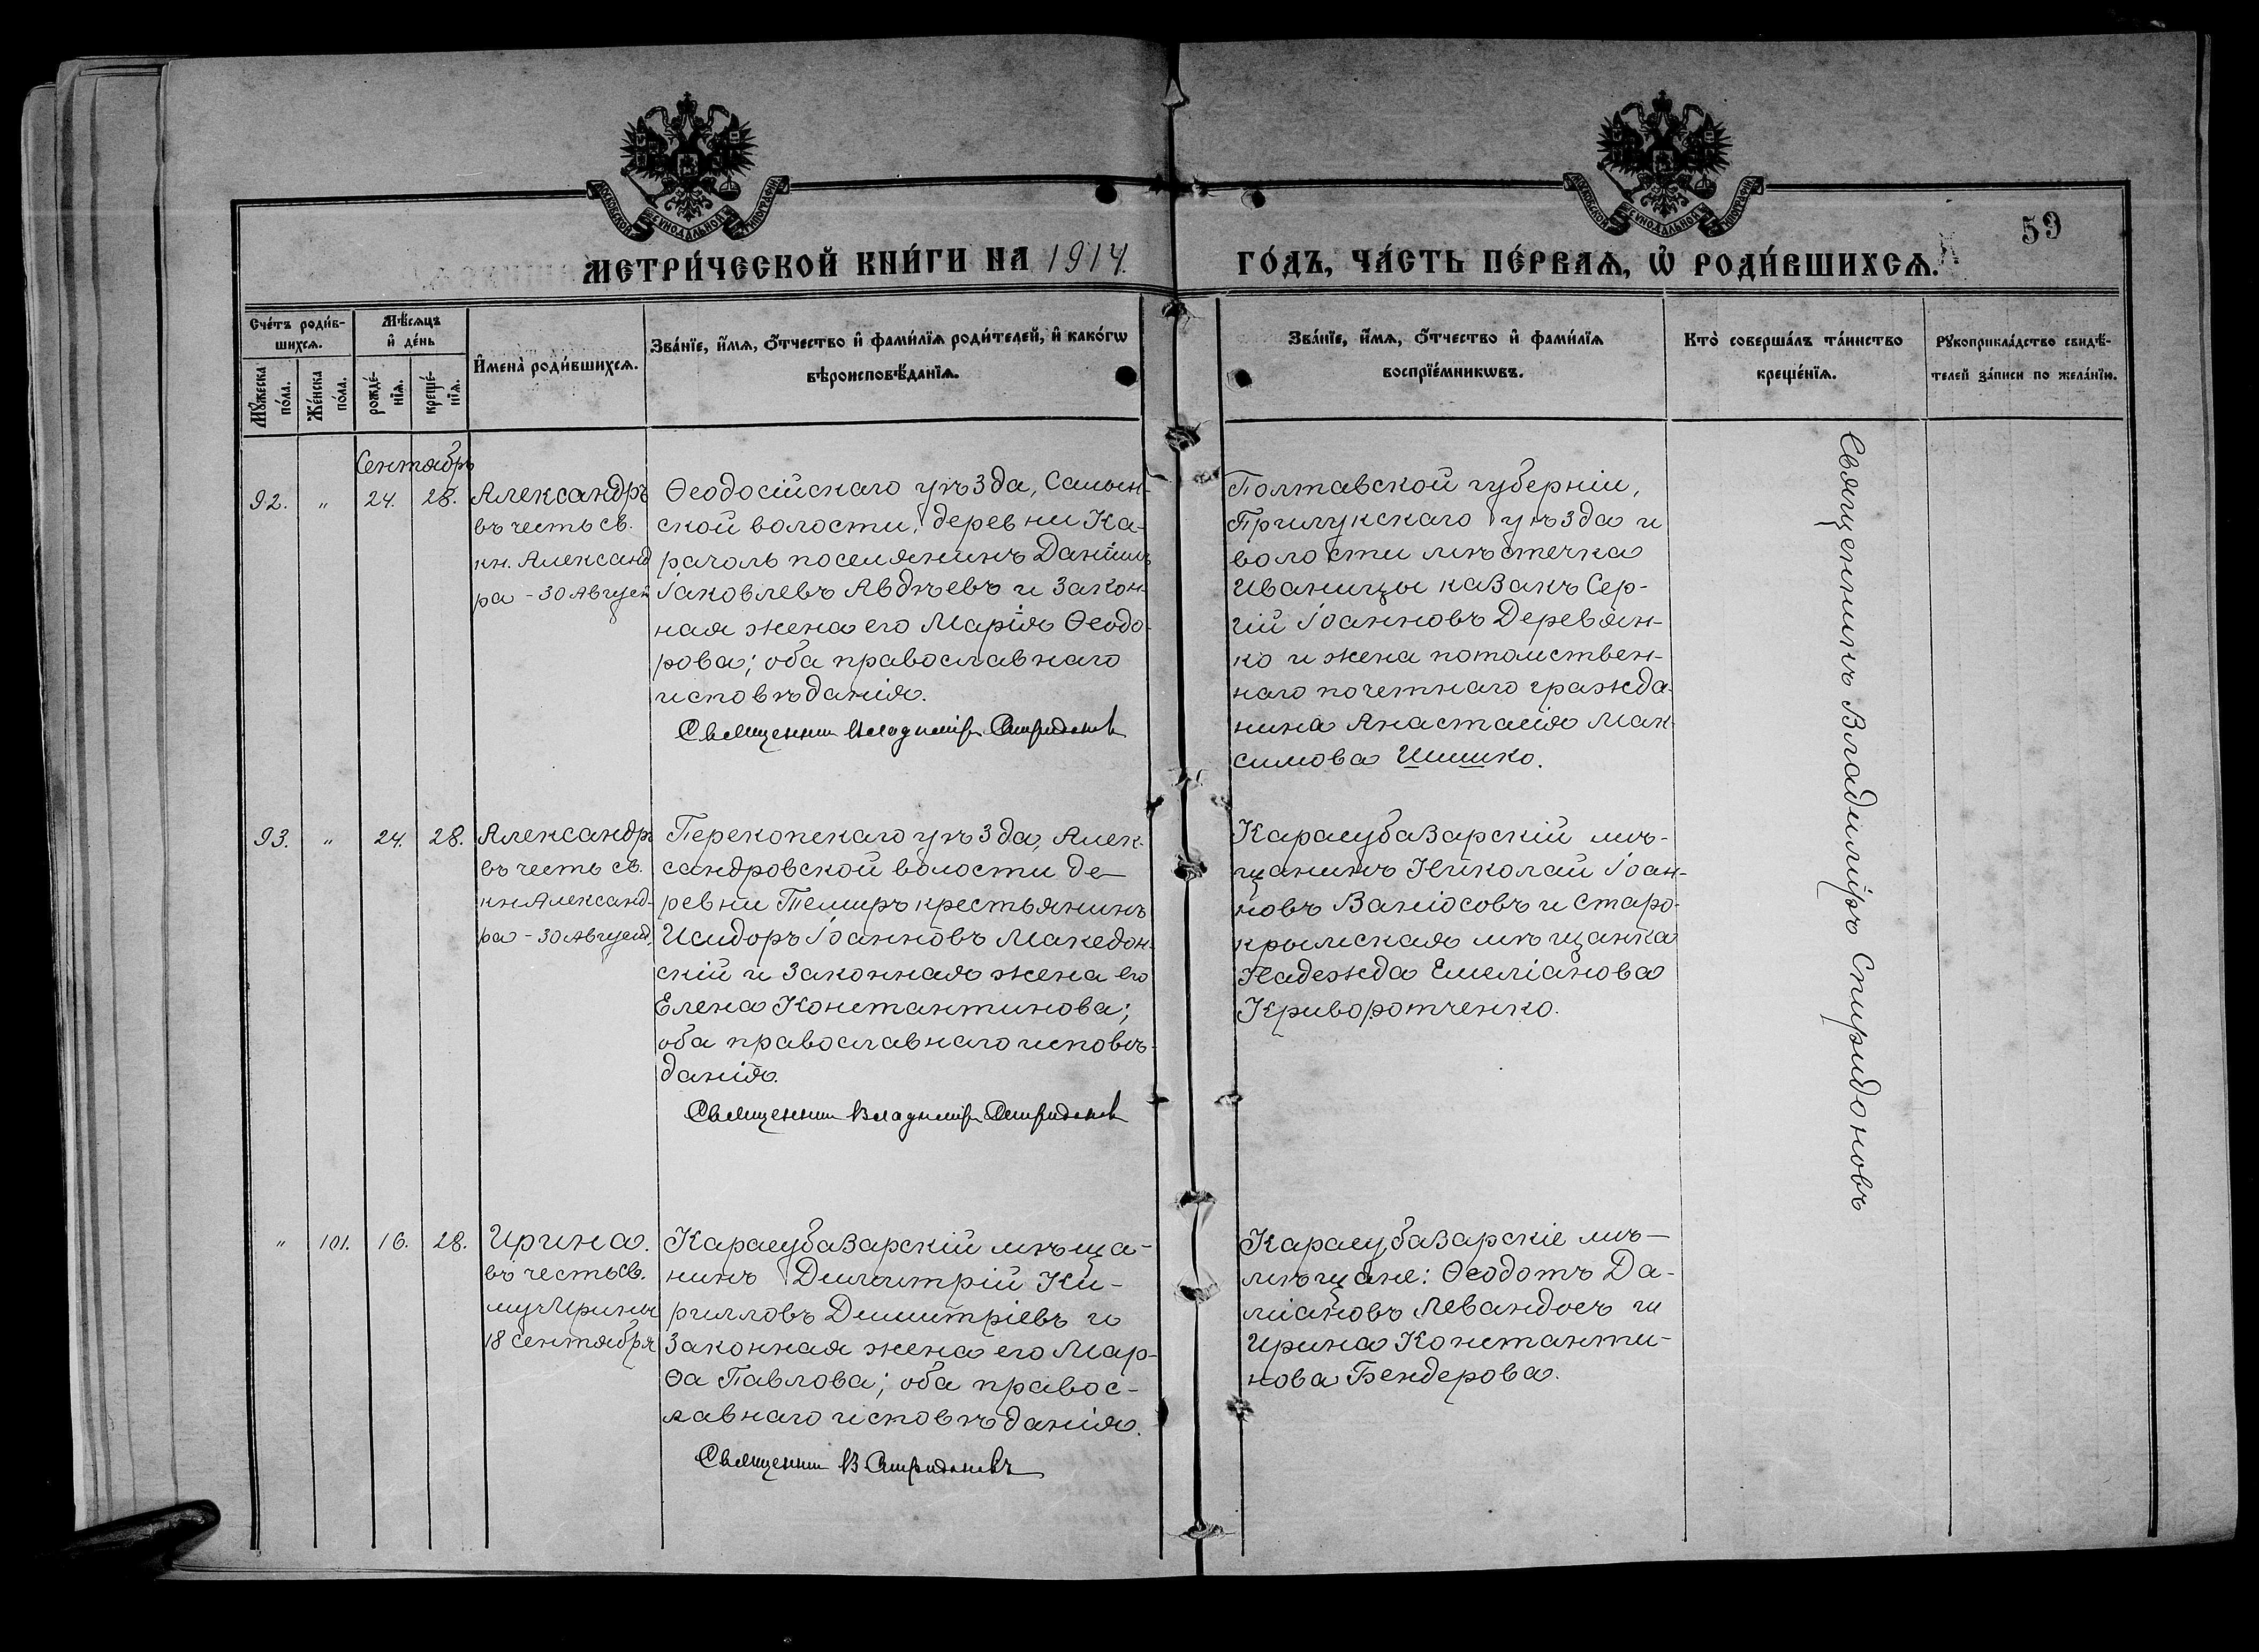 МОСКОВСКОЙ СѴНОДАЛЬНОЙ ТИПОГРАФІИ
МОСКОВСКОЙ СѴНОДАЛЬНОЙ ТИПОГРАФІИ
59
МЕТРИ́ЧЕСКОЙ КНИ́ГИ НА 1914. ГО́ДЪ, ЧА́СТЬ ПЕ́РВАѦ, Ѡ҆ РОДИ́ВШИХСѦ.
Сче́тъ роди́в-
шихсѧ.
Мѣ́сѧцъ
и҆ де́нь
И҆мена̀ роди́вшихсѧ.
Зва́нїе, и҆́мѧ, ѻ҆́тчество и҆ фами́лїѧ роди́телей, и҆ како́гѡ
вѣроисповѣ́данїѧ.
Зва́нїе, и҆́мѧ, ѻ҆́тчество и҆ фами́лїѧ
воспрїе́мникѡвъ.
Кто̀ соверша́лъ та́инство
креще́нїѧ.
Рꙋкоприкла́дство свидѣ́-
телей за́писи по жела́нїю.
Мꙋ́жеска
по́ла.
Же́нска
по́ла.
рожде́-
нїѧ.
креще́-
нїѧ.
Сентябрь
92. " 24. 28.
Александръ
въ честь св.
кн. Александ
ра - 30 Август
Ѳеодосійскаго уѣзда, Салын-
ской волости, деревни Ка-
рачоль поселянинъ Даніилъ
Іаковлевъ Авдѣевъ и закон-
ная жена его Марія Ѳеодо-
рова; оба православнаго
исповѣданія.
Священник Владиміръ Спиридонов
Полтавской губерніи,
Прилукскаго уѣзда и
волости мѣстечка
Иваницы казакъ Сер-
гій Іоанновъ Деревян-
ко и жена потомствен-
наго почетнаго гражда-
нина Анастасія Мак-
симова Шишко.
Священникъ Владиміръ Спиридоновъ
93. " 24. 28.
Александръ
въ честь св.
кн Александ-
ра - 30 Август.
Перекопскаго уѣзда, Алек-
сандровской волости де-
ревни Темиръ крестьянинъ
Исидоръ Іоанновъ Македон-
скій и законная жена его
Елена Константинова;
оба православнаго исповѣ-
данія.
Священник Владиміръ Спиридонов
Карасубазарскій мѣ-
щанинъ Николай Іоан-
новъ Ваніосовъ и старо-
крымская мѣщанка
Надежда Емеліанова
Криворотченко.
" 101. 16. 28.
Ирина.
въ честь св.
муч Ирины
18 Сентября
Карасубазарскій мѣща-
нинъ Димитрій Ки-
рилловъ Димитріевъ и
законная жена его Мар-
ѳа Павлова; оба правос-
лавнаго исповѣданія.
Священник В Спиридоновъ
Карасубазарскіе мѣ-
мѣщане: Ѳеодотъ Да-
міановъ Левандосъ и
Ирина Константи-
нова Бендерова.